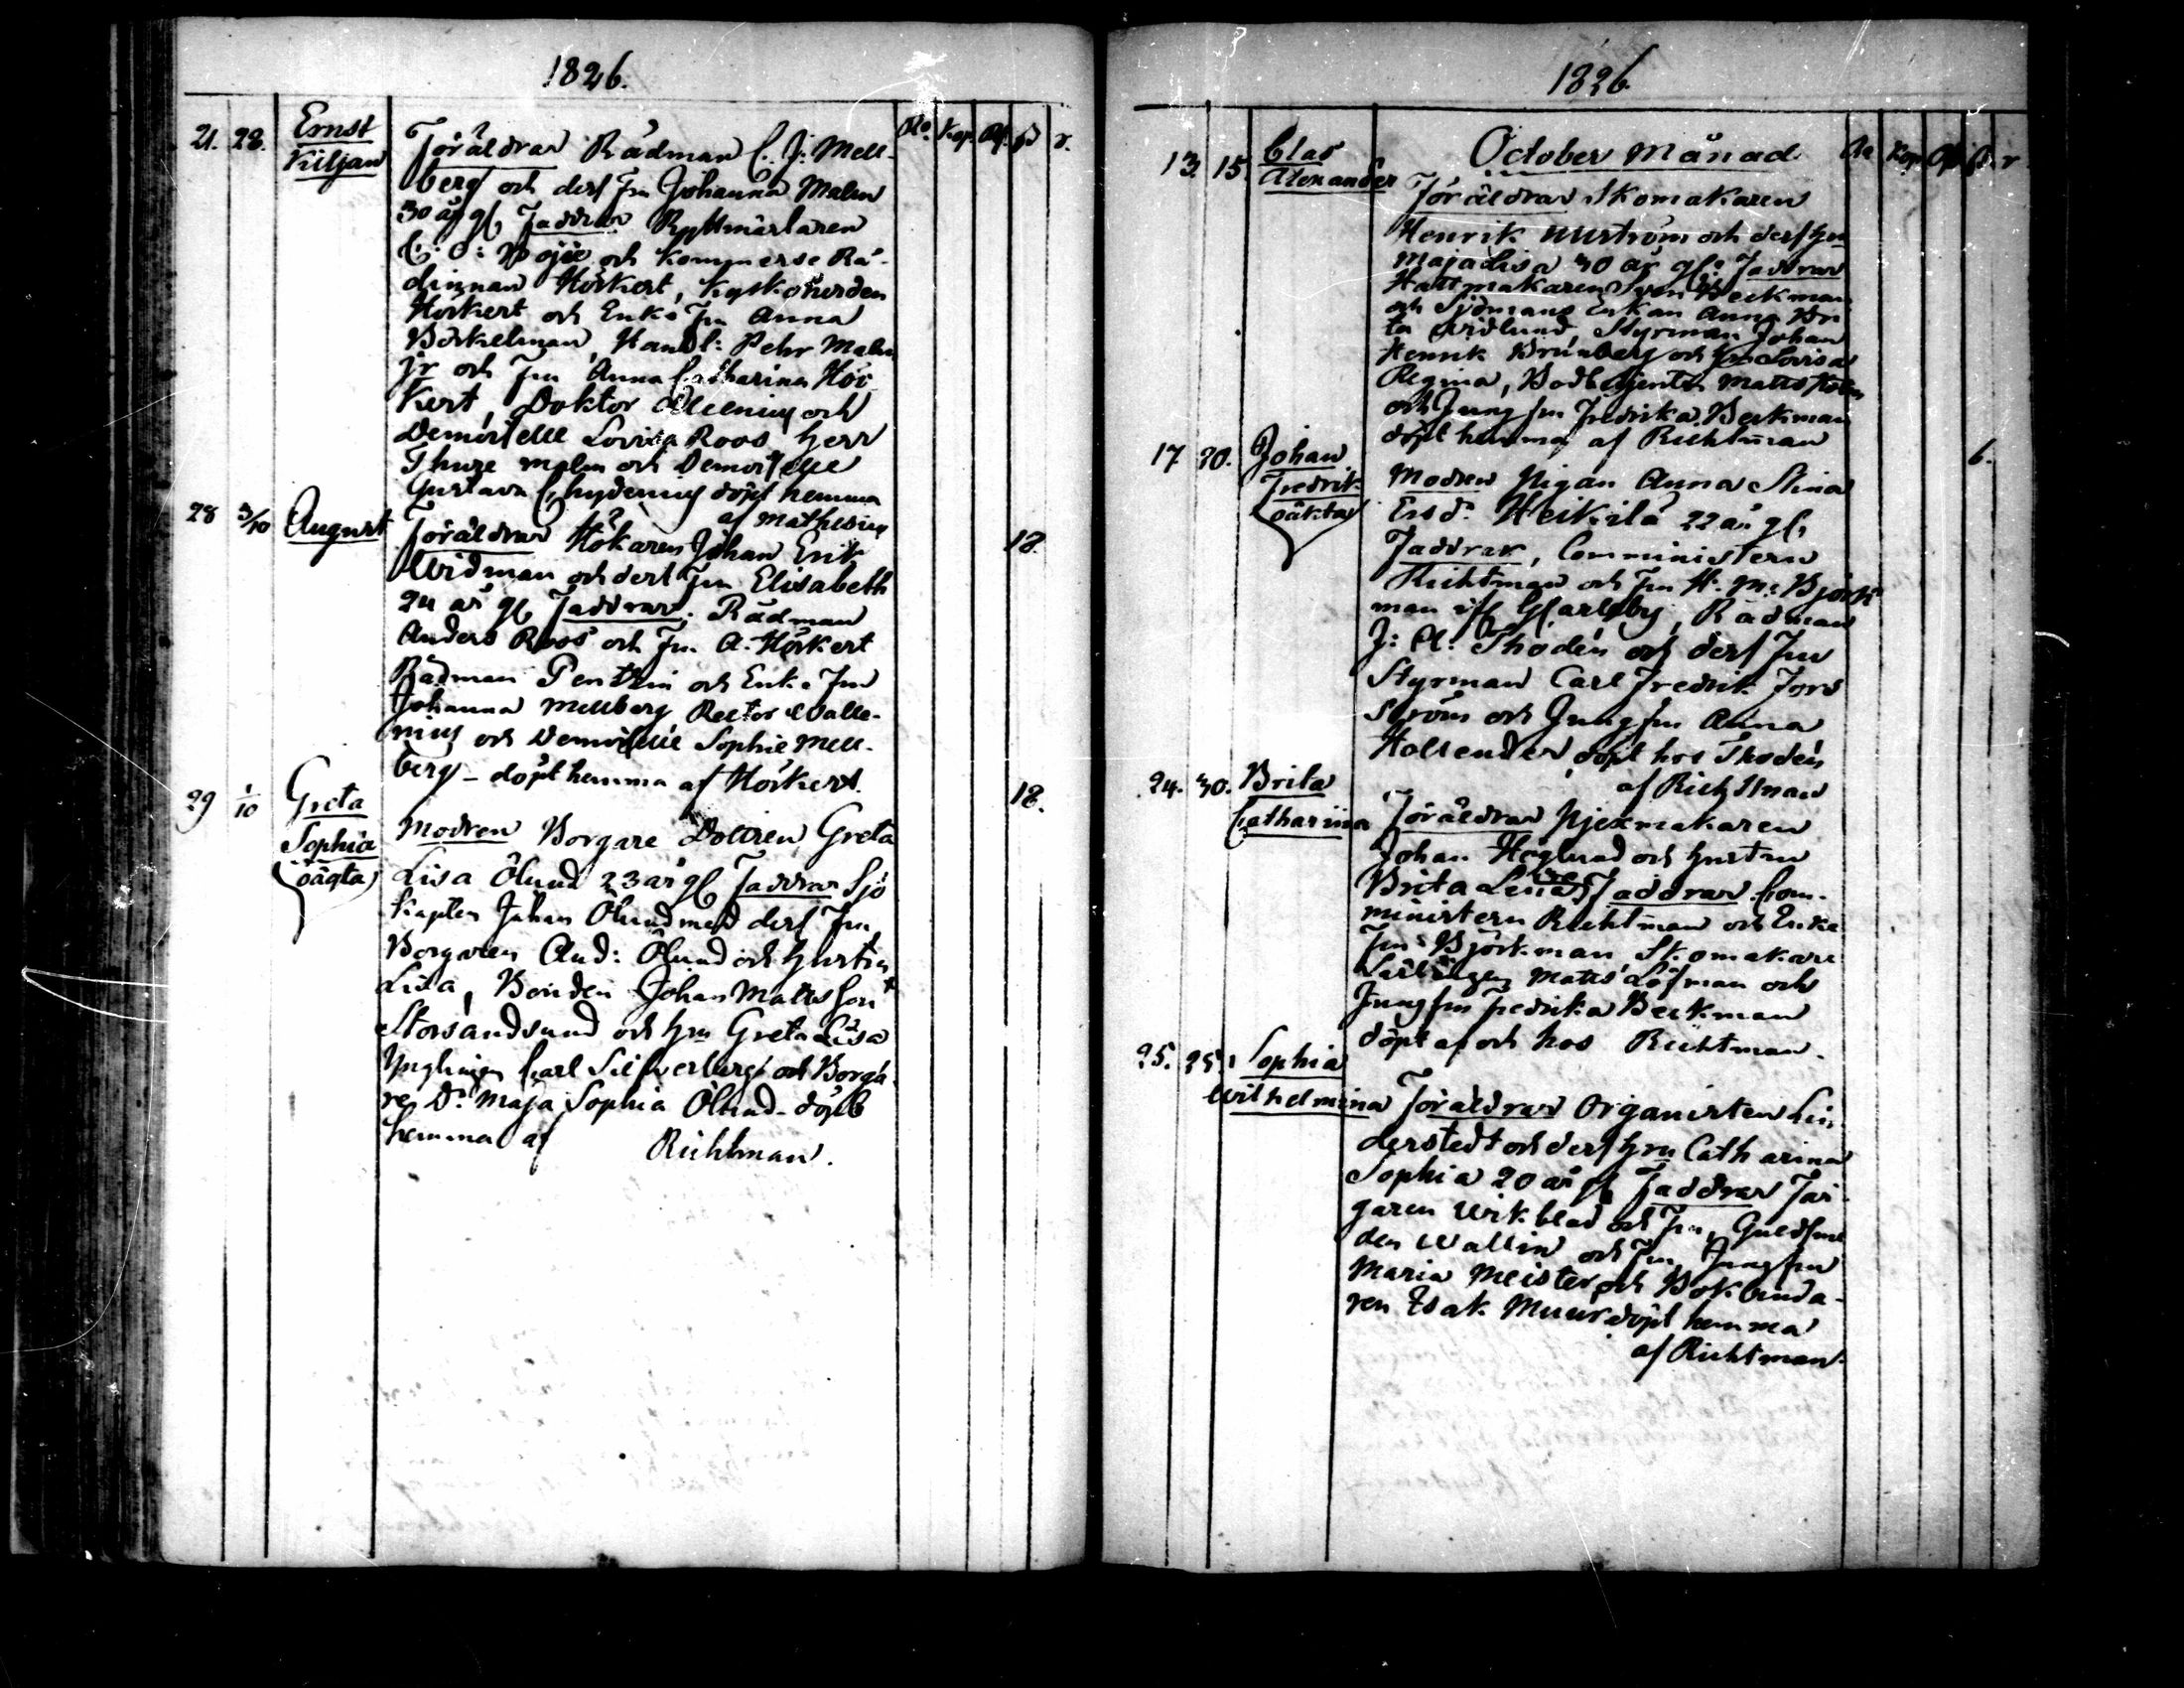 1826.
21. 28. Ernst
Kiljan
Föräldrar Rådman C. J: Mell-
berg och dess Fru Johanna Malm
30 år gl. Faddrar Ryttmästaren
och Kommerse Rå-
dinnan Hörkert,
Hörkert och Enke Fru Anna
Böckelman, Handl: Pehr Malm
jr och Fru Anna Catharina Hör
kert, Doktor och
Demoiselle Lovisa Roos, Herr
Thure Malm och Demoiselle
Gustava Chydenius döpt hemma
af Mathesius
28 3/10 August
Föräldrar Hökaren Johan Erik
Widman och dess Fru Elisabeth
24 år gl. Faddrar: Rådman
Anders Roos och Fru A. Hörkert
Rådman och Enke Fru
Johanna Mellberg, Rector Walle-
nius och Demoiselle Sophie Mell-
berg - döpt hemma af Hörkert.
18.
29 1/10 Greta
Sophia
oägta
Modren Borgare Dottren Greta
Lisa Ölund 23 år gl Faddrar Sjö
Kapten Johan Ölund med dess Fru,
Borgaren And: Ölund och Hustru
Lisa, Bonden Johan Matts Son
Storsandsund och Hru Greta Lisa
Ynglingen Carl Silfverberg och Borga
re Dr Maja Sophia Ölund - döpt
hemma af Richtman.
18.
1826.
October Månad
13. 15. Clas
Alexander
Föräldrar Skomakaren
Henrik och dess Hru
Maja Lisa 30 år gl: Faddrar
Hattmakaren Sven Beckman
och Sjömans Enkan Anna Bri
ta Widlund, Styrman Johan
Henrik Brunberg och Hru Lovisa
Regina, Matts
och Jungfru Fredrika Beckman
döpt hemma af Richtman
17 30. Johan
Fredrik
oäkta
Modren Pigan Anna Stina
Ersdr Heikilä 22 år gl,
Faddrar, Comministern
Richtman och Fru H: M: Björk
man Carleby, Rådman
J: A: Thodén och dess Fru
Styrman Carl Fredrik Fors
ström och Jungfru Anna
Hollender, döpt hos Thodén
af Richtman
6.
24. 30. Brita
Catharina
Föräldrar Pjexmakaren
Johan Höglund och Hustru
Brita Lena Faddrar Com-
ministern Richtman och Enke
Fru Björkman Skomakare
Lärlingen Matts Löfman och
Jungfru Fredrika Beckman
döpt af och hos Richtman.
25. 25. Sophia
Wilhelmina
Föräldrar Organisten Lin
derstedt och dess Hru Catharina
Sophia 20 år gl Faddrar Fär-
garen Wikblad och Fru, Guldsme
den Wallin och Fru, Jungfru
Maria Meister och Bokbinda-
ren Isak Muur döpt hemma
af Richtman.